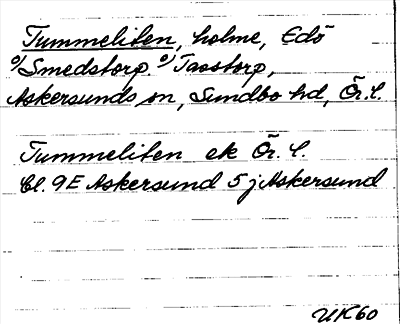 Tummeliten, holme, Edö
o/ Smedstorp. o/ Tasstorp,
Askersunds sn, Sundbo hd, Ör. l.
Tummeliten ek Ör. l.
bl. 9E Askersund 5 j Askersund
UK60